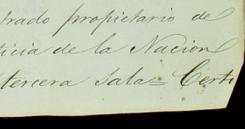 trado propietario de
ticia de la Nacion
tercera Sala= Certi